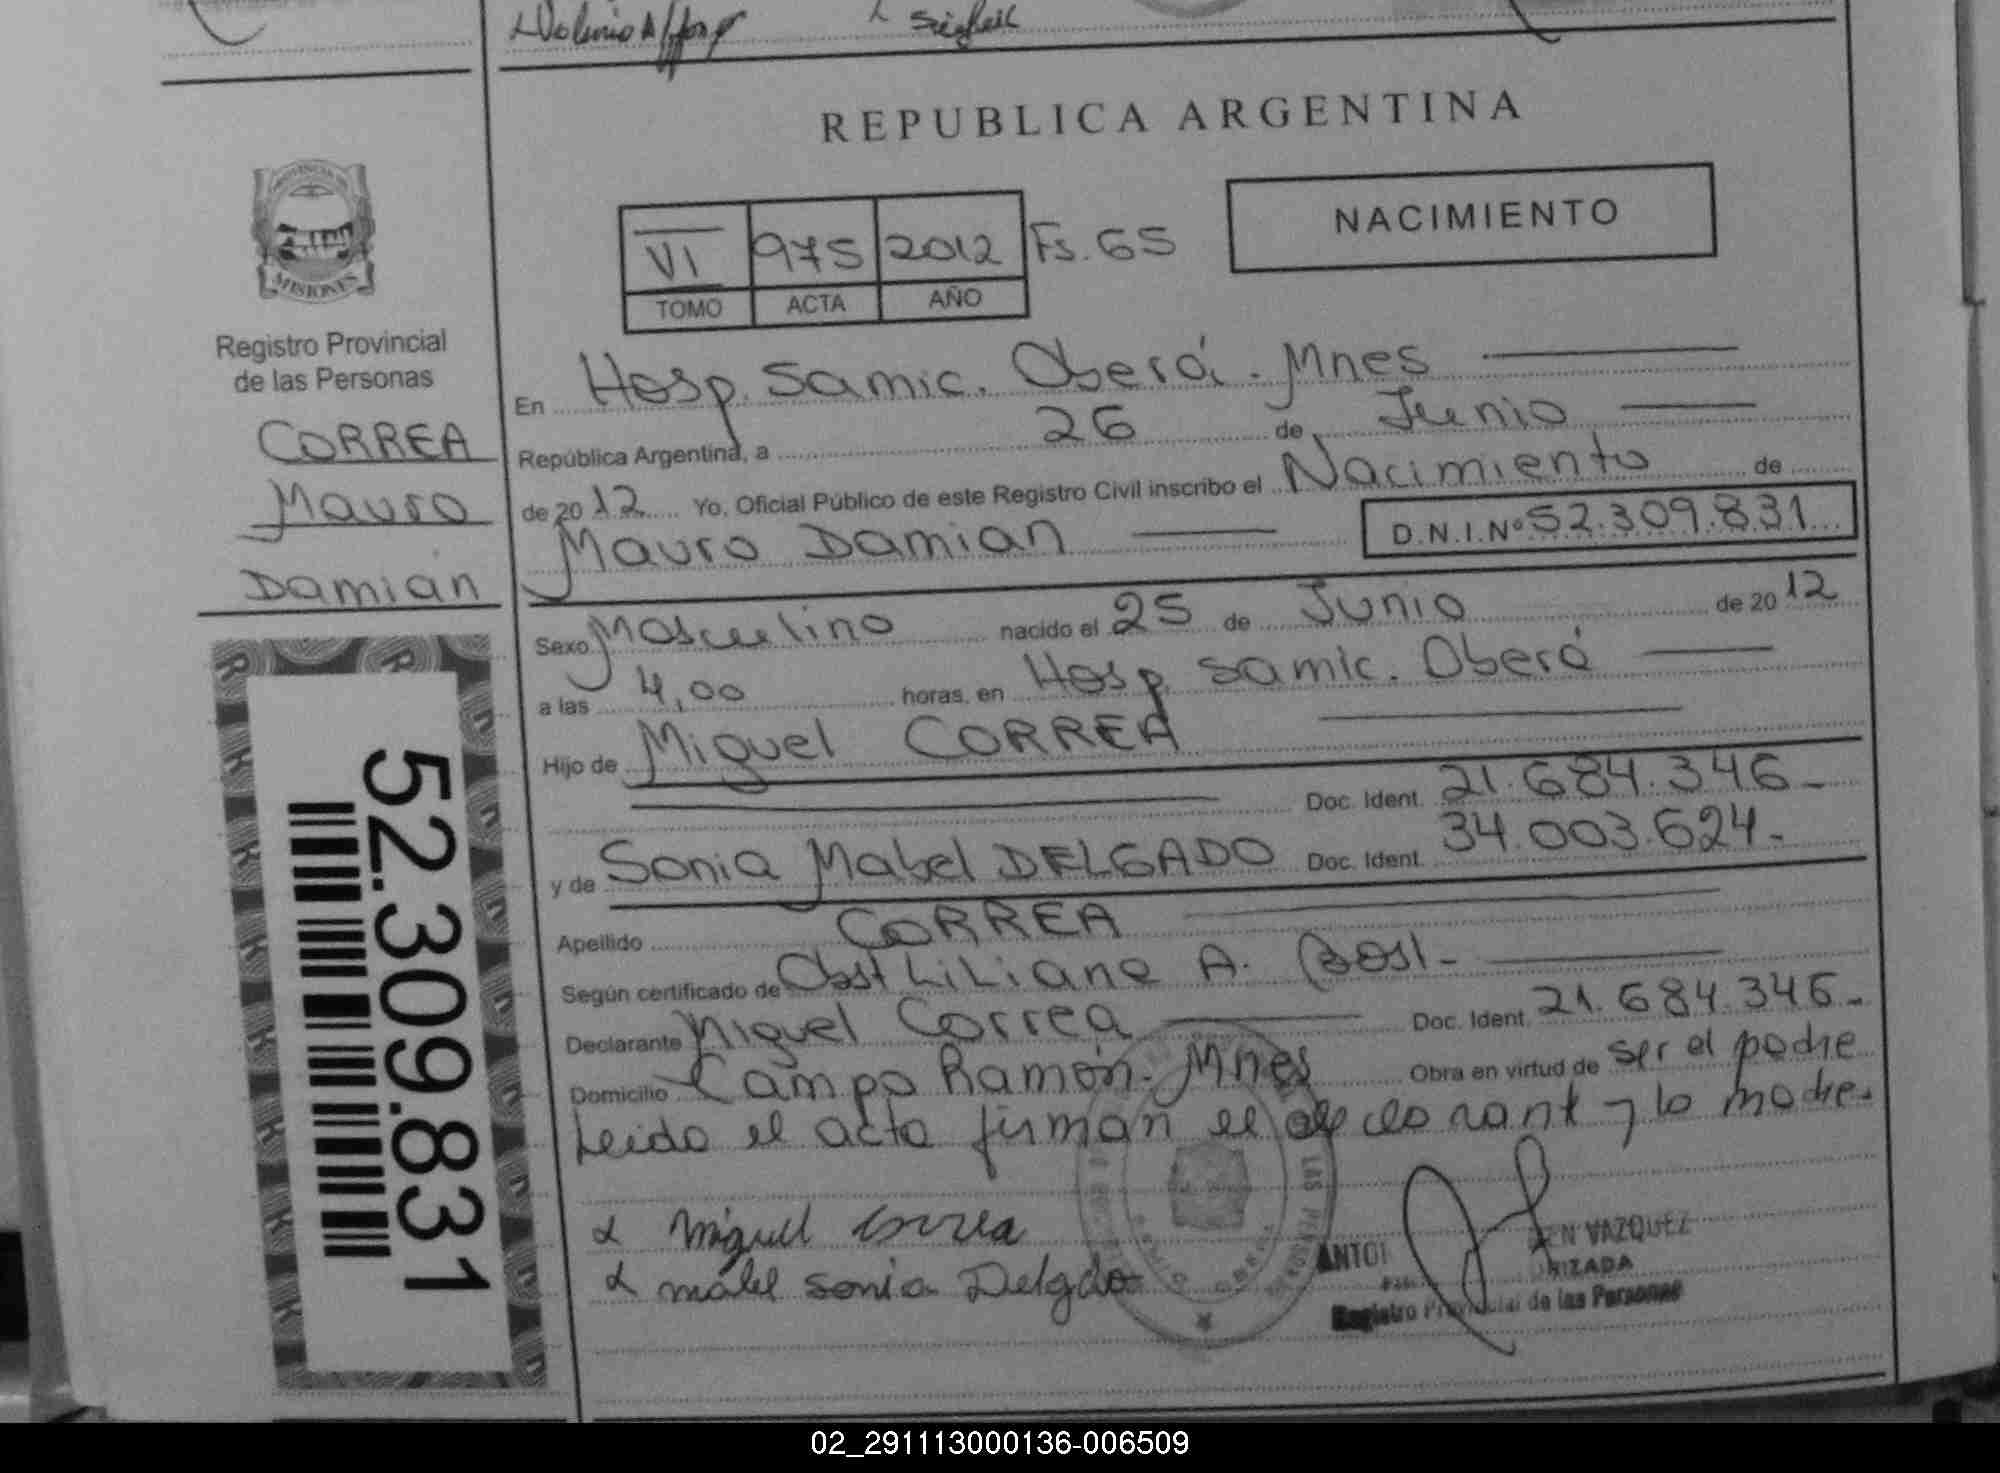 REPUBLICA ARGENTINA
NACIMIENTO
VI 975 2012 Fs. 65
TOMO ACTA AÑO
PROVINCIA DE
MISIONES
Registro Provincial
de las Personas
CORREA
Mauro
Damián
52.309.831
En Hosp. Samic. Oberá. Mnes
República Argentina, a 26 de Junio
de 2012 Yo, Oficial Público de este Registro Civil inscribo el Nacimiento de
Mauro Damian D.N.I.Nº 52.309.831
Sexo Masculino nacido el 25 de Junio de 2012
a las 4,00 horas, en Hosp. Samic. Oberá
Hijo de Miguel CORREA
Doc. Ident. 21.684.346-
y de Sonia Mabel DELGADO Doc. Ident. 34.003.624-
Apellido CORREA
Según certificado de Obst Liliana A.
Declarante Miguel Correa Doc. Ident. 21.684.346-
Domicilio Campo Ramón. Mnes Obra en virtud de ser el padre
Leido el acta firman el declarant y la madre.
Miguel Correa
mabel sonia Delgdo
VAZQUEZ
Registro Provincial de las Personas
02_291113000136-006509